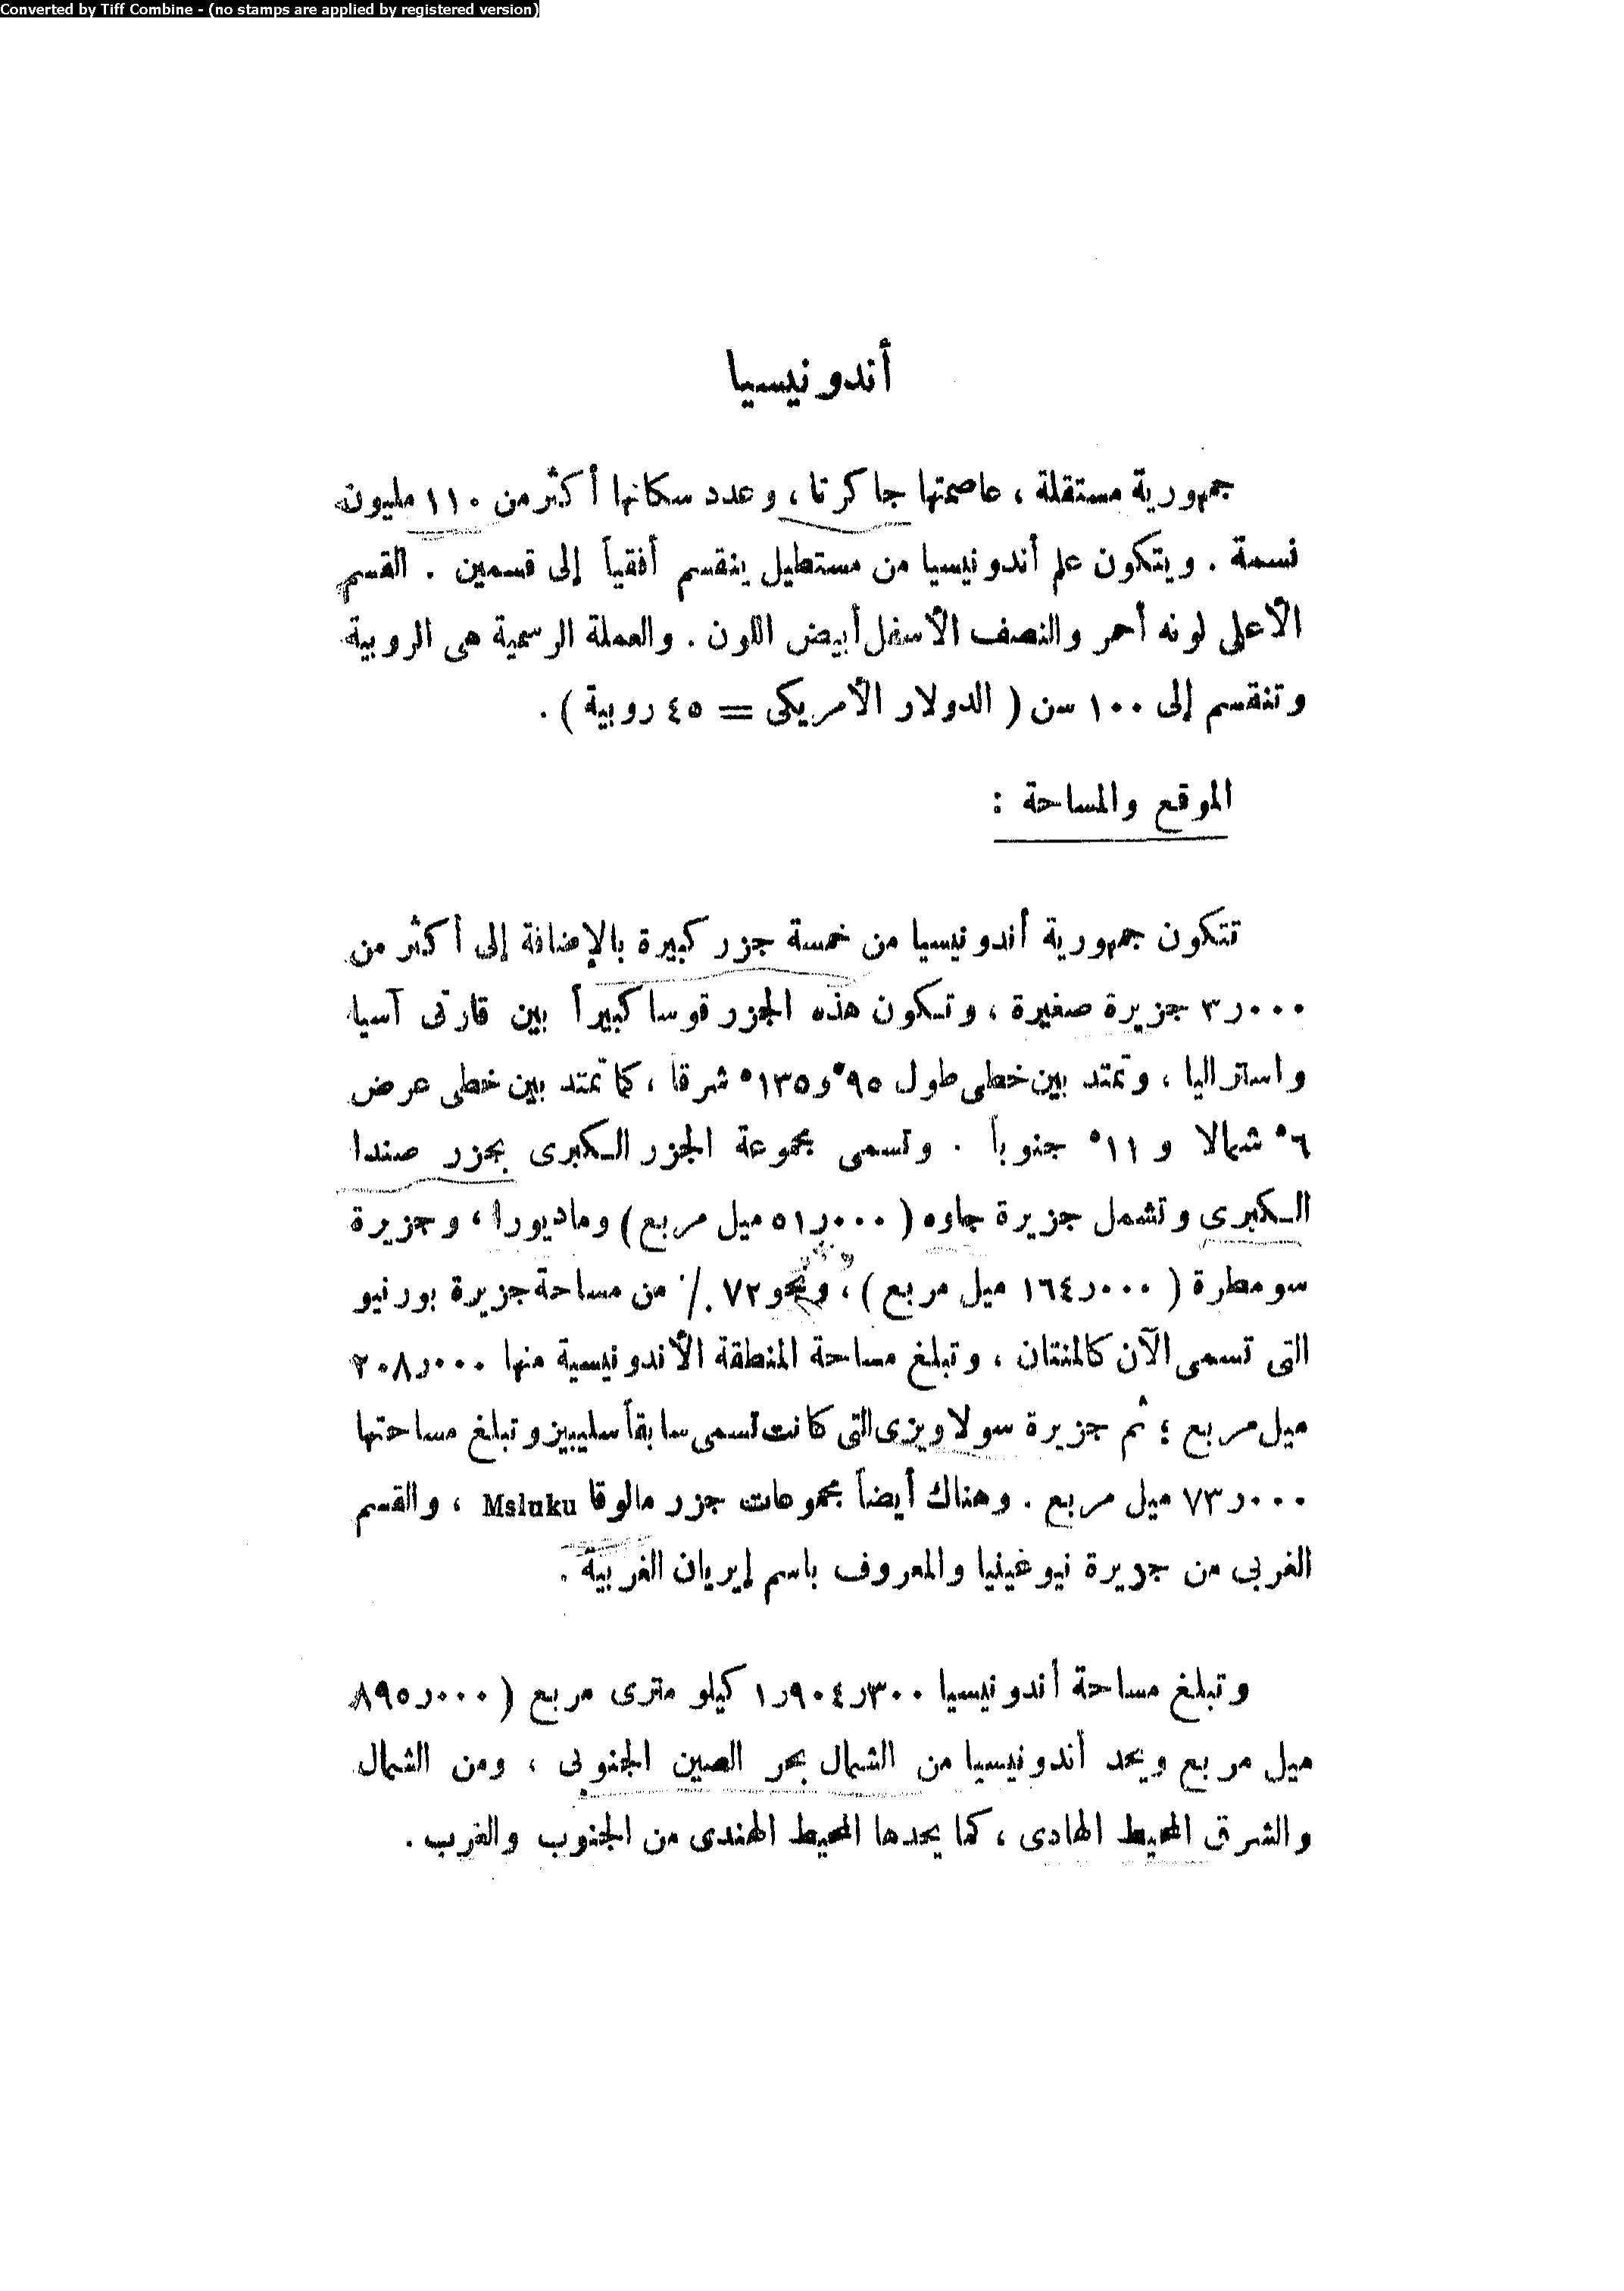 Converted by Tiff Combine - (no stamps are applied by registered version)
أندونيسيا
جمهورية مستقلة ، عاصمتها جاكرتا ، وعدد سكانها أكثر من ١١٠ مليون
نسمة . ويتكون علم أندونيسيا من مستطيل ينقسم أفقياً إلى قسمين . القسم
الأعلى لونه أحمر والنصف الأسفل أبيض اللون . والعملة الرسمية هى الروبية
وتنقسم إلى ١٠٠ سن ( الدولار الأمريكى = ٤٥ روبية ) .
الموقع والمساحة :
تتكون جمهورية أندونيسيا من خمسة جزر كبيرة بالإضافة إلى أكثر من
٣٫٠٠٠ جزيرة صغيرة ، وتكون هذه الجزر قوسا كبيراً بين قارتى آسيا
واستراليا ، وتمتد بين خطى طول ٩٥° و١٣٥° شرقا ، كما تمتد بين خطى عرض
٦° شمالا و ١١° جنوباً . وتسمى مجموعة الجزر الكبرى بجزر صندا
الكبرى وتشمل جزيرة جاوه ( ٥١٫٠٠٠ ميل مربع ) وماديورا ، وجزيرة
سومطرة ( ١٦٤٫٠٠٠ ميل مربع ) ، ونحو ٧٢ ٪ من مساحة جزيرة بورنيو
التى تسمى الآن كالمنتان ، وتبلغ مساحة المنطقة الأندونيسية منها ٢٠٨٫٠٠٠
ميل مربع ؛ ثم جزيرة سولاويزى التى كانت تسمى سابقاً سليبيز وتبلغ مساحتها
٧٣٫٠٠٠ ميل مربع . وهناك أيضاً مجموعات جزر مالوقا Msluku ، والقسم
الغربى من جزيرة نيوغينيا والمعروف باسم إيريان الغربية .
وتبلغ مساحة أندونيسيا ١٫٩٠٤٫٣٠٠ كيلو مترى مربع ( ٨٩٥٫٠٠٠
ميل مربع ويحد أندونيسيا من الشمال بحر الصين الجنوبى ، ومن الشمال
والشرق المحيط الهادى ، كما يحدها المحيط الهندى من الجنوب والغرب .